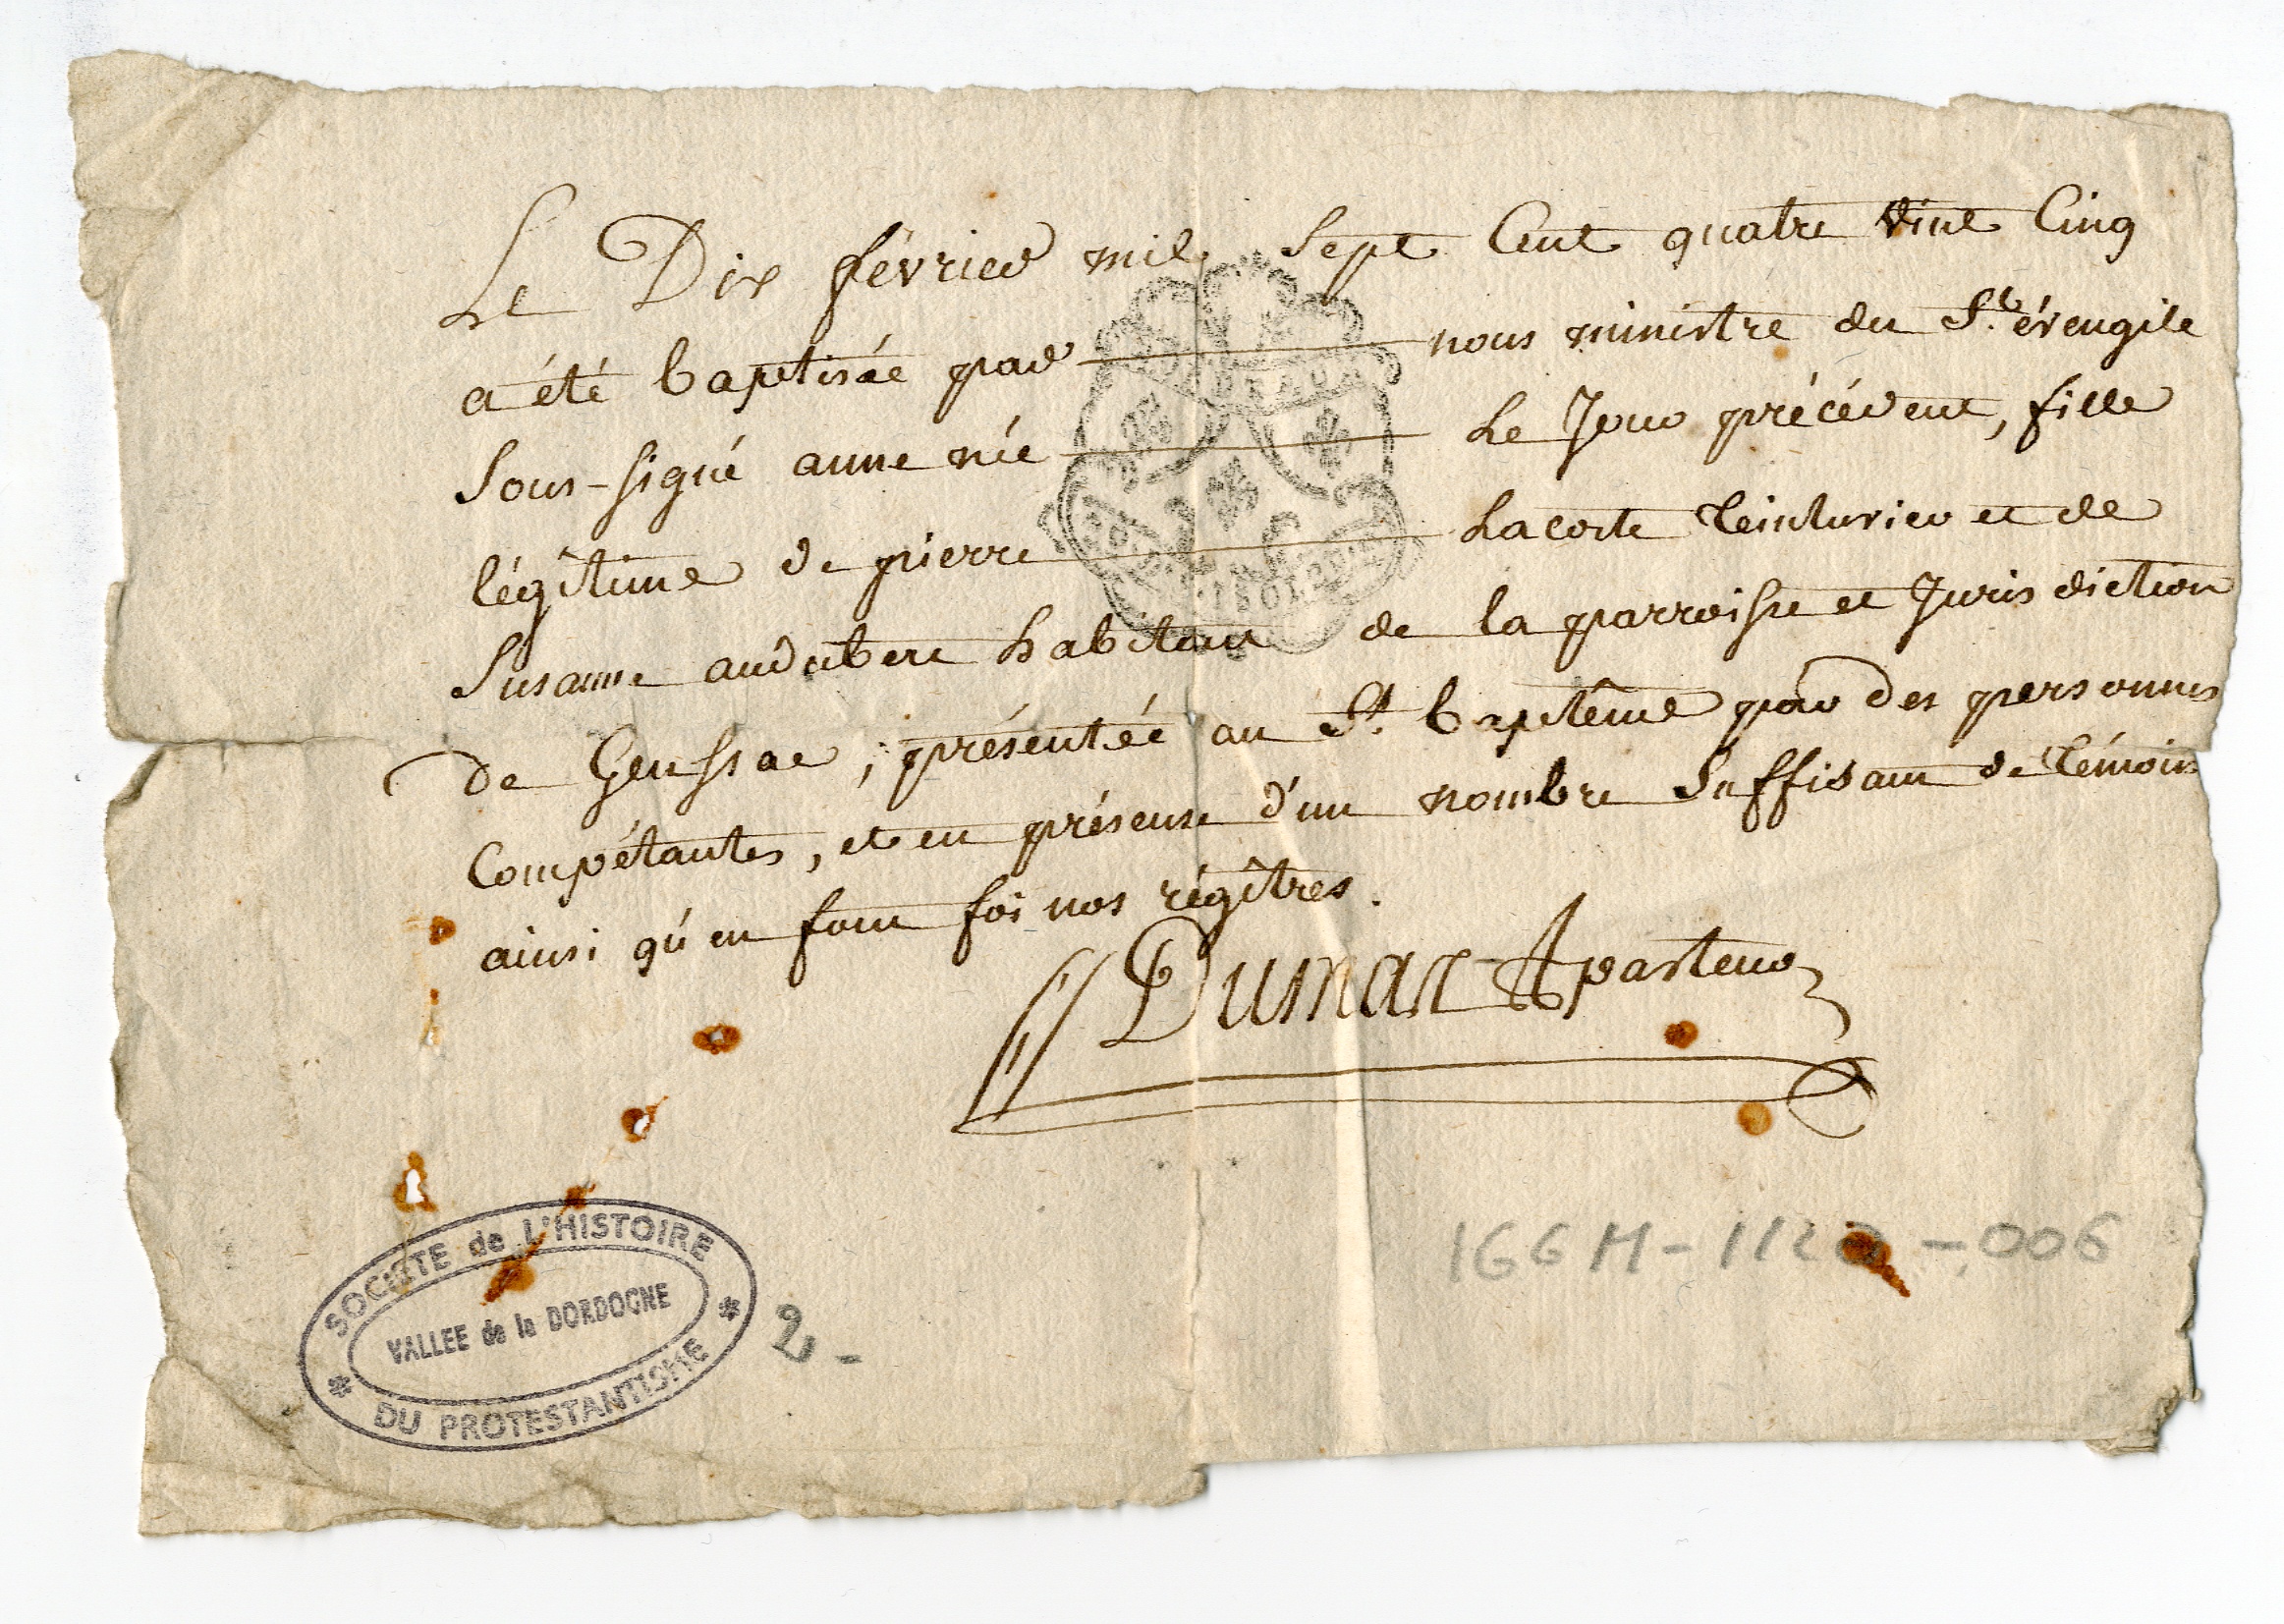 Le Dix février mil sept Cent quatre vint Cinq
a été baptisée par nous ministre du St. évengile
sous-signé anne née Le Jour précédent, fille
légîtime de pierre Lacoste teinturier et de
Susanne audubert habitans de la parroisse et Jurisdiction
de Genssac, présentée au St. baptême par des personnes
Compétantes, et en présense d'un nombre suffisant de témoins
ainsi qu'en font foi nos régîtres.
Dumas pasteur
BORDEAUX
SOCIETE de L'HISTOIRE
VALLEE de la DORDOGNE
DU PROTESTANTISME
2-